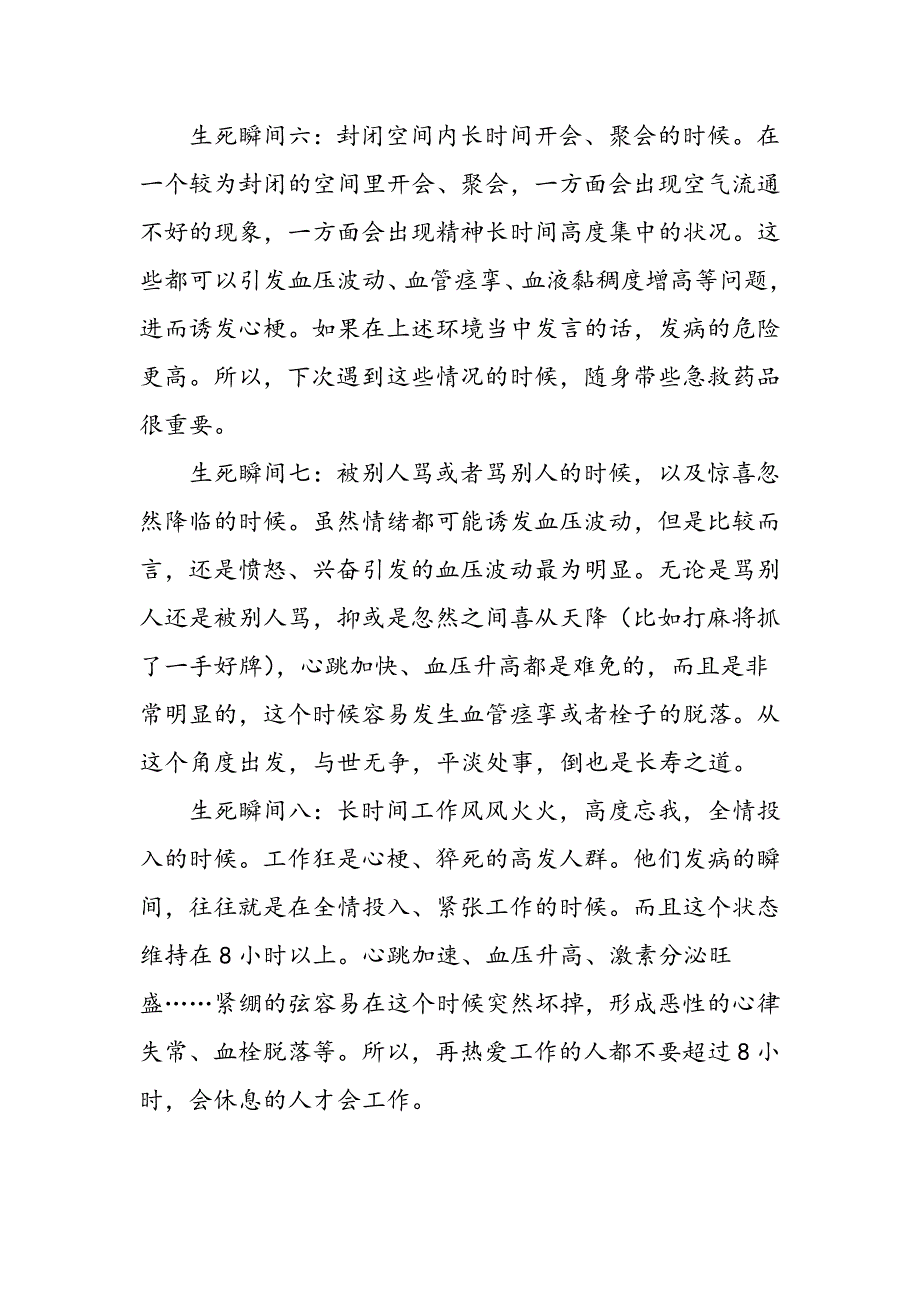 生死瞬间六：封闭空间内长时间开会、聚会的时候。在
一个较为封闭的空间里开会、聚会，一方面会出现空气流通
不好的现象，一方面会出现精神长时间高度集中的状况。这
些都可以引发血压波动、血管痉挛、血液黏稠度增高等问题，
进而诱发心梗。如果在上述环境当中发言的话，发病的危险
更高。所以，下次遇到这些情况的时候，随身带些急救药品
很重要。
生死瞬间七：被别人骂或者骂别人的时候，以及惊喜忽
然降临的时候。虽然情绪都可能诱发血压波动，但是比较而
言，还是愤怒、兴奋引发的血压波动最为明显。无论是骂别
人还是被别人骂，抑或是忽然之间喜从天降（比如打麻将抓
了一手好牌），心跳加快、血压升高都是难免的，而且是非
常明显的，这个时候容易发生血管痉挛或者栓子的脱落。从
这个角度出发，与世无争，平淡处事，倒也是长寿之道。
生死瞬间八：长时间工作风风火火，高度忘我，全情投
入的时候。工作狂是心梗、猝死的高发人群。他们发病的瞬
间，往往就是在全情投入、紧张工作的时候。而且这个状态
维持在8小时以上。心跳加速、血压升高、激素分泌旺
盛……紧绷的弦容易在这个时候突然坏掉，形成恶性的心律
失常、血栓脱落等。所以，再热爱工作的人都不要超过8小
时，会休息的人才会工作。